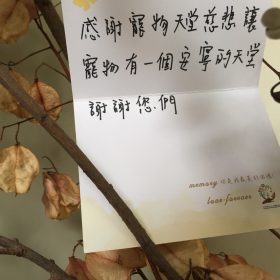 感謝寵物天堂慈悲讓
寵物有一個安寧的天堂
謝謝您們
memory 你是我最美的相遇!
love forever